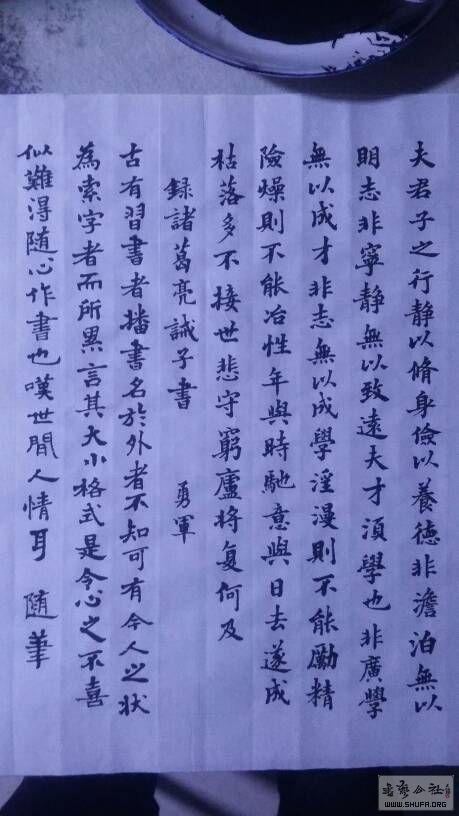 夫君子之行静以脩身儉以養德非澹泊無以
明志非寧静無以致遠夫才須學也非廣學
無以成才非志無以成學淫漫則不能勵精
險燥則不能冶性年與時馳意與日去遂成
枯落多不接世悲守窮廬將复何及
録諸葛亮誡子書 勇軍
古有習書者播書名於外者不知可有今人之状
為索字者而所累言其大小格式是令心之不喜
似難得随心作書也嘆世間人情耳 随筆
WWW.SHUFA.ORG